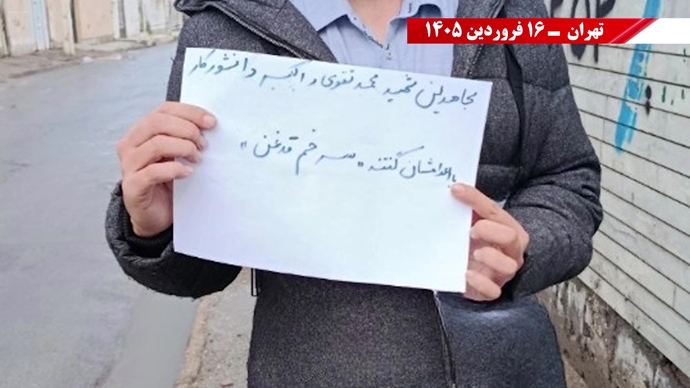 تهران ـ ۱۶ فروردین ۱۴۰۵
مجاهدین شهید محمد تقوی و اکبر دانشورکار
با اعدامشان گفتند "سر خم قدغن"